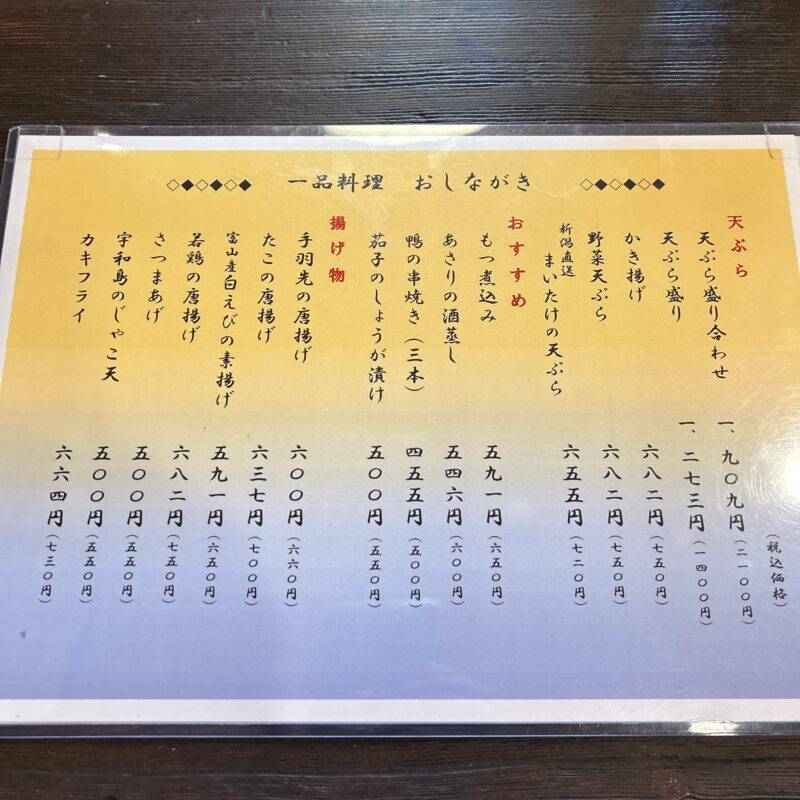 ◇◆◇◆◇◆ 一品料理 おしながき ◇◆◇◆◇◆
(税込価格)
天ぷら
天ぷら盛り合わせ 一、九〇九円(二一〇〇円)
天ぷら盛り 一、二七三円(一四〇〇円)
かき揚げ 六八二円(七五〇円)
野菜天ぷら 六八二円(七五〇円)
新潟直送 まいたけの天ぷら 六五五円(七二〇円)
おすすめ
もつ煮込み 五九一円(六五〇円)
あさりの酒蒸し 五四六円(六〇〇円)
鴨の串焼き(三本) 四五五円(五〇〇円)
茄子のしょうが漬け 五〇〇円(五五〇円)
揚げ物
手羽先の唐揚げ 六〇〇円(六六〇円)
たこの唐揚げ 六三七円(七〇〇円)
富山産白えびの素揚げ 五九一円(六五〇円)
若鶏の唐揚げ 六八二円(七五〇円)
さつまあげ 五〇〇円(五五〇円)
宇和島のじゃこ天 五〇〇円(五五〇円)
カキフライ 六六四円(七三〇円)